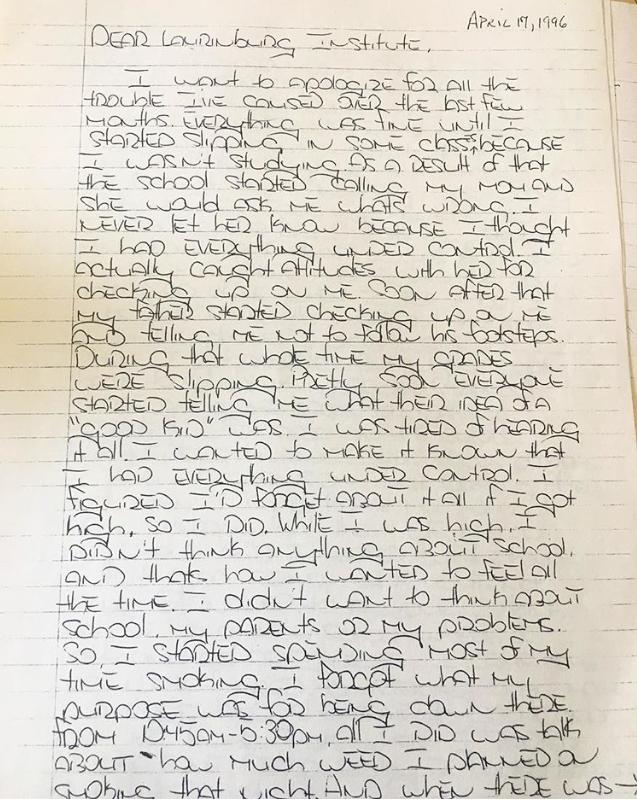 APRIL 17, 1996
DEAR LAURINBURG INSTITUTE,
I want to apologize for all the
trouble I've caused over the last few
months. Everything was fine until I
started slipping in some class, because
I wasn't studying. As a result of that
the school started calling my mom and
she would ask me what's wrong. I
never let her know because I thought
I had everything under control. I
actually caught attitudes with her for
checking up on me. Soon after that
my father started checking up on me
and telling me not to follow his footsteps.
During that whole time my grades
were slipping. Pretty soon everyone
started telling me what their idea of a
"good kid" was. I was tired of hearing
it all. I wanted to make it known that
I had everything under control. I
figured I'd forget about it all if I got
high. So I did. While I was high, I
didn't think anything about school.
and thats how I wanted to feel all
the time. I didn't want to think about
school, my parents or my problems.
So, I started spending most of my
time smoking. I forgot what my
purpose was for being down there.
From pm, all I did was talk
about how much weed I planned on
smoking that night. And when there was →